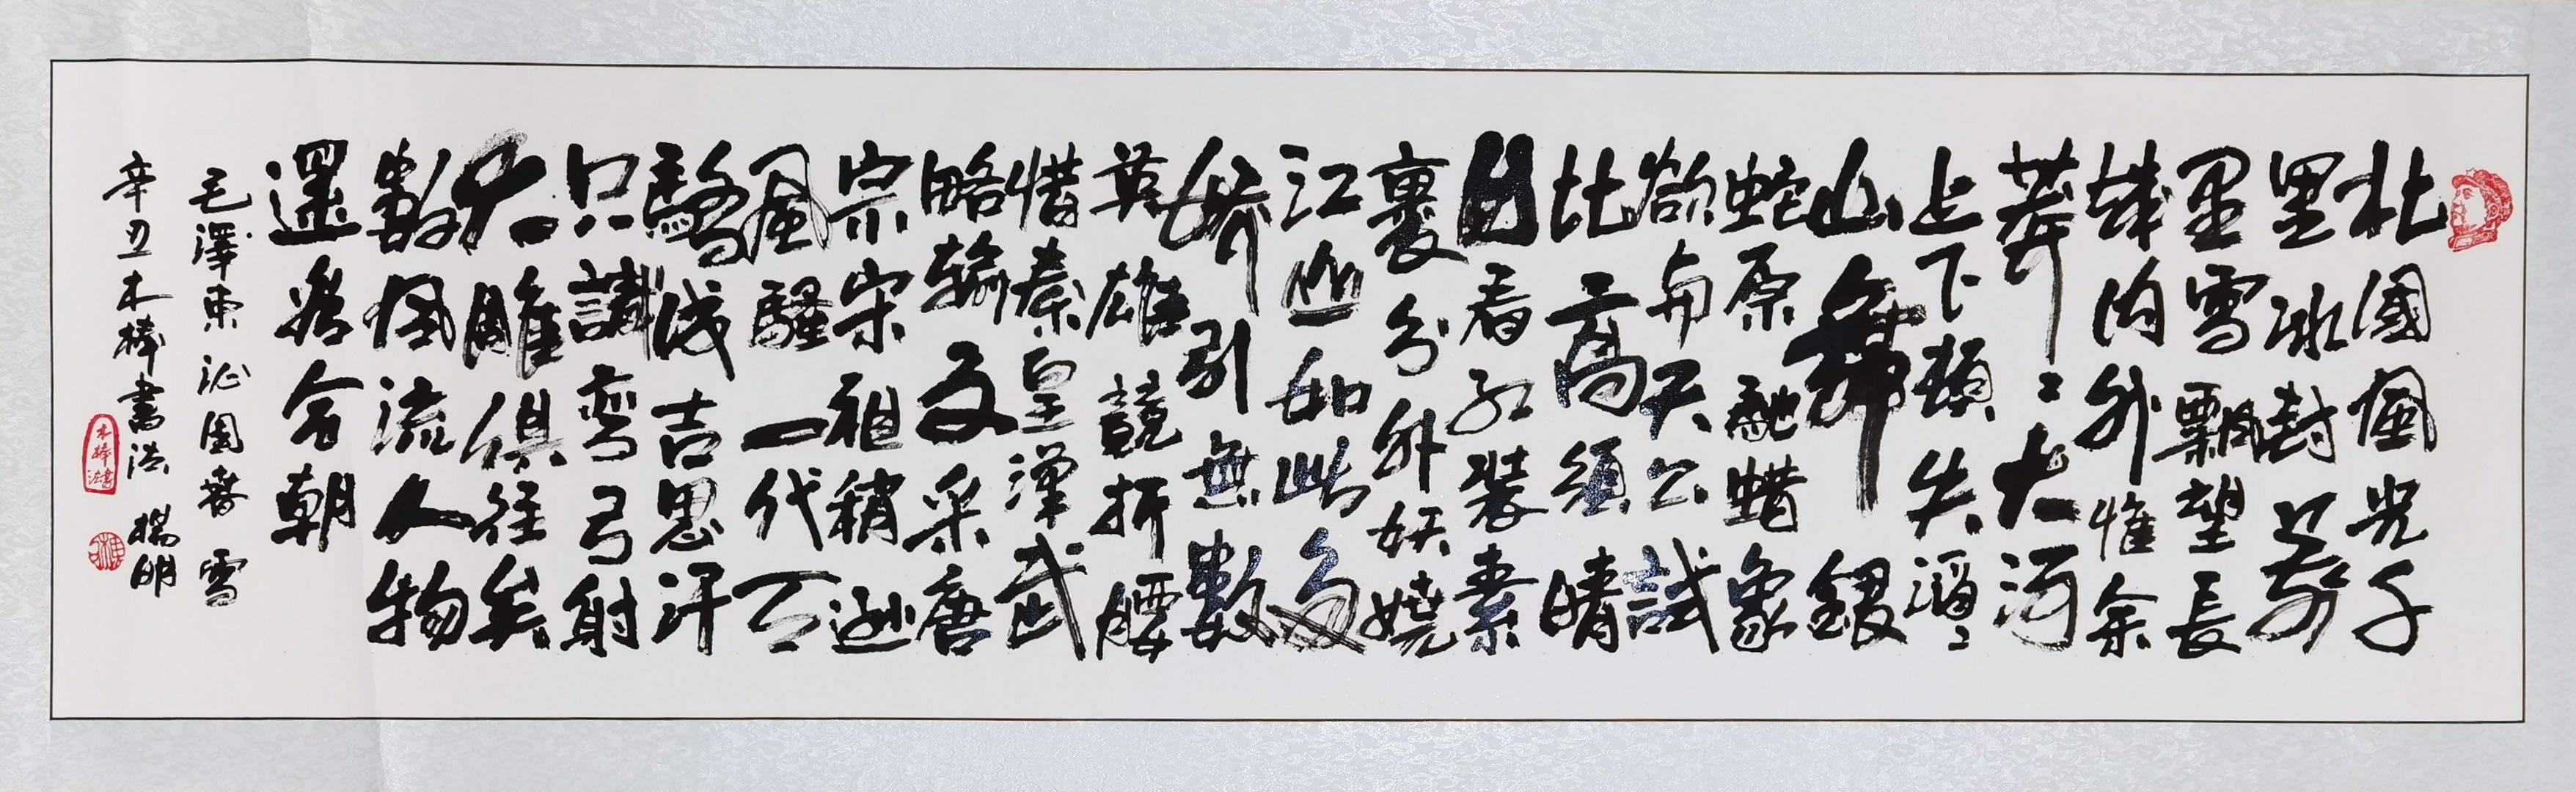 北國風光千
里冰封萬
里雪飄望長
城内外惟余
莽〻大河
上下頓失滔〻
山舞銀
蛇原馳蜡象
欲与天公試
比高須晴
日看红裝素
裹分外妖嬈
江山如此多
嬌引無數
英雄競折腰
惜秦皇漢武
略輸文采唐
宗宋祖稍遜
風騷一代天
驕成吉思汗
只識彎弓射
大雕俱往矣
數風流人物
還看今朝
毛澤東沁園春雪
辛丑木棒書法 楊明
木棒書法